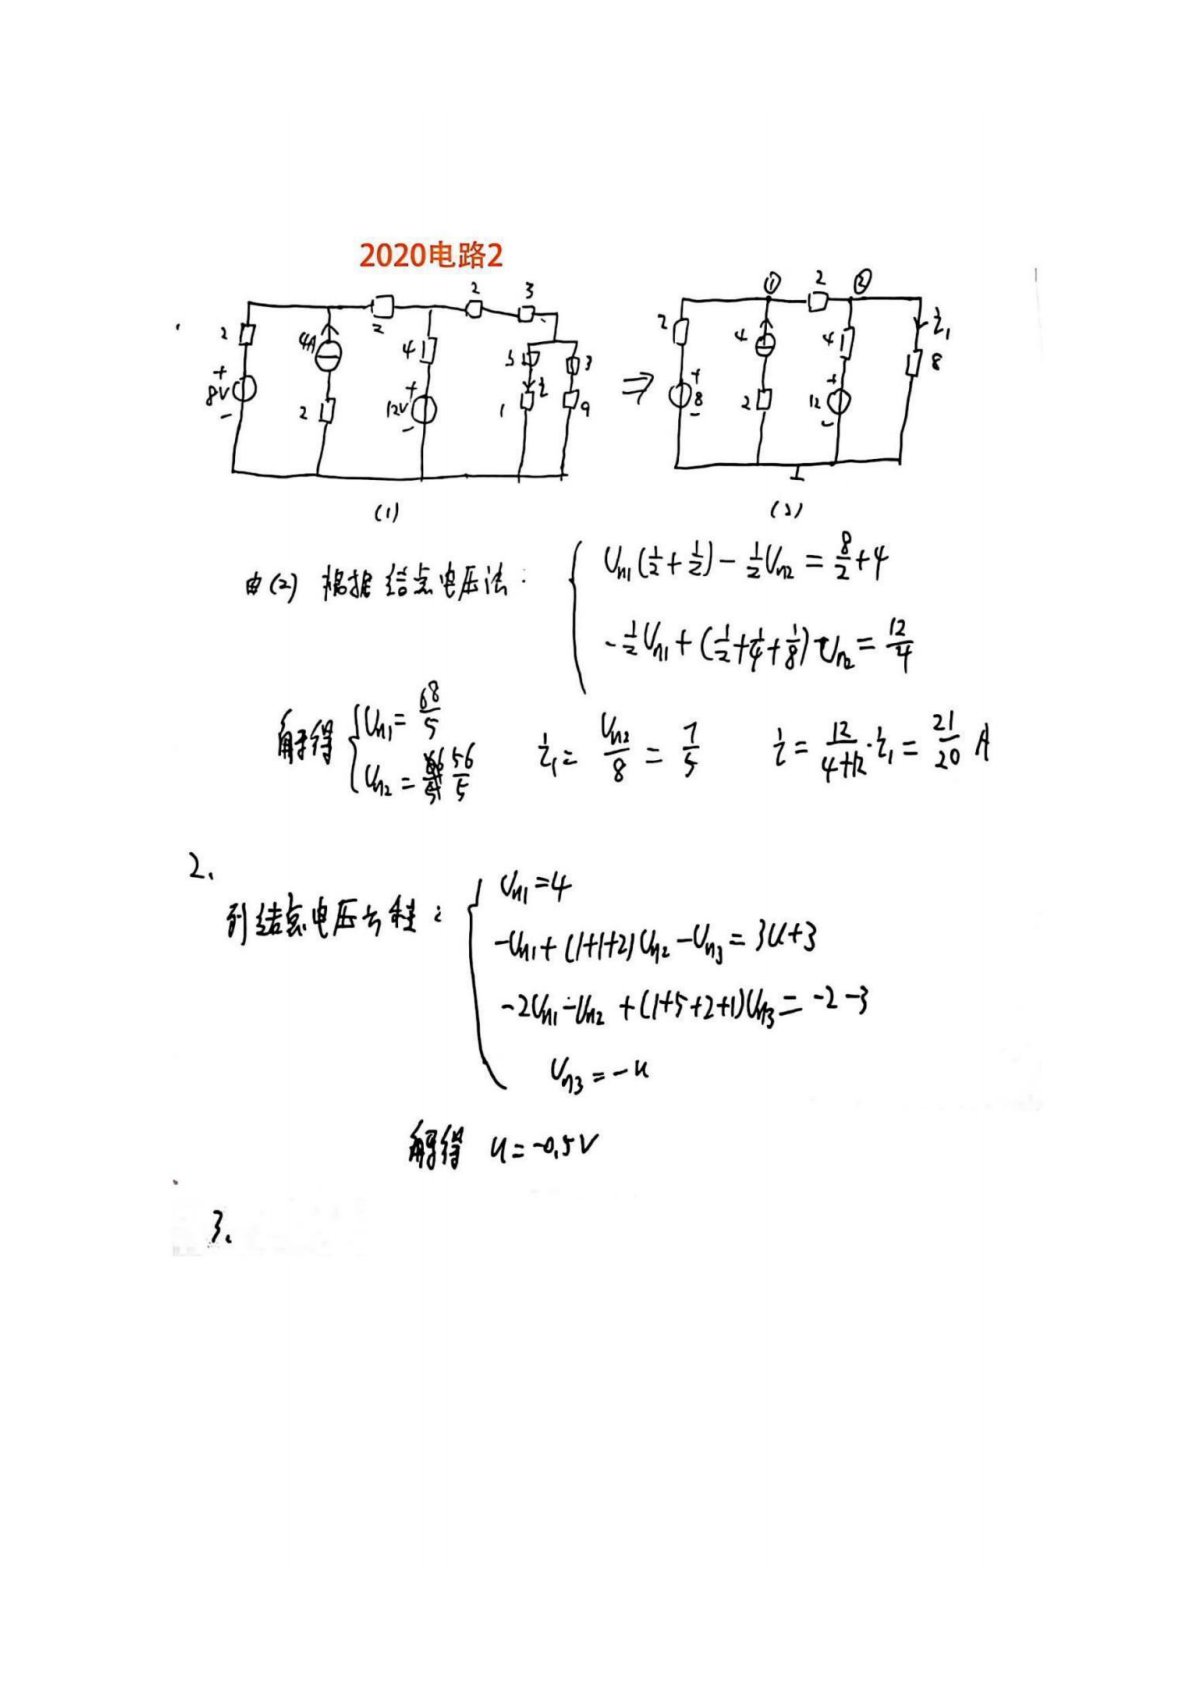 2020电路2
2 2 3
2 4A 4 5 3
+ 8V - 2 + 12V - 1 i 9
(1)
⇒
① 2 ②
2 4 4 i₁ 8
+ 8 - 2 + 12 -
(2)
由(2) 根据结点电压法: { Un1(1/2+1/2)-1/2Un2=8/2+4
-1/2Un1+(1/2+1/4+1/8)Un2=12/4
解得 { Un1=68/5
Un2=56/5
i₁=Un2/8=7/5 i=12/(4+12)·i₁=21/20 A
2.
列结点电压方程: { Un1=4
-Un1+(1+1+2)Un2-Un3=3u+3
-2Un1-Un2+(1+5+2+1)Un3=-2-3
Un3=-u
解得 u=-0.5V
3.